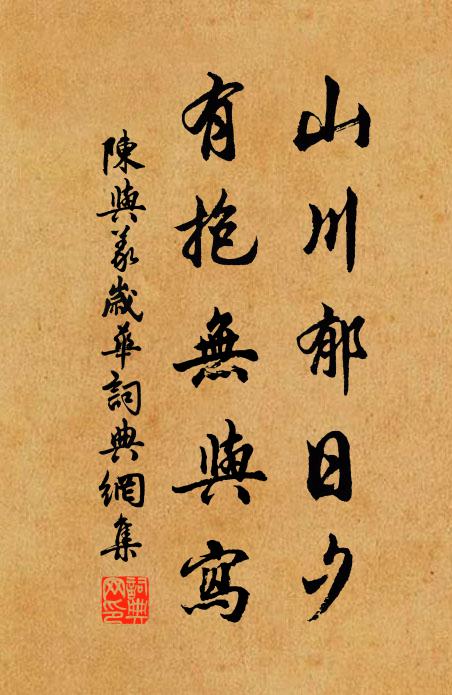 山川郁日夕
有抱無與寫
陳與義歲華詞典網集
詞典網印